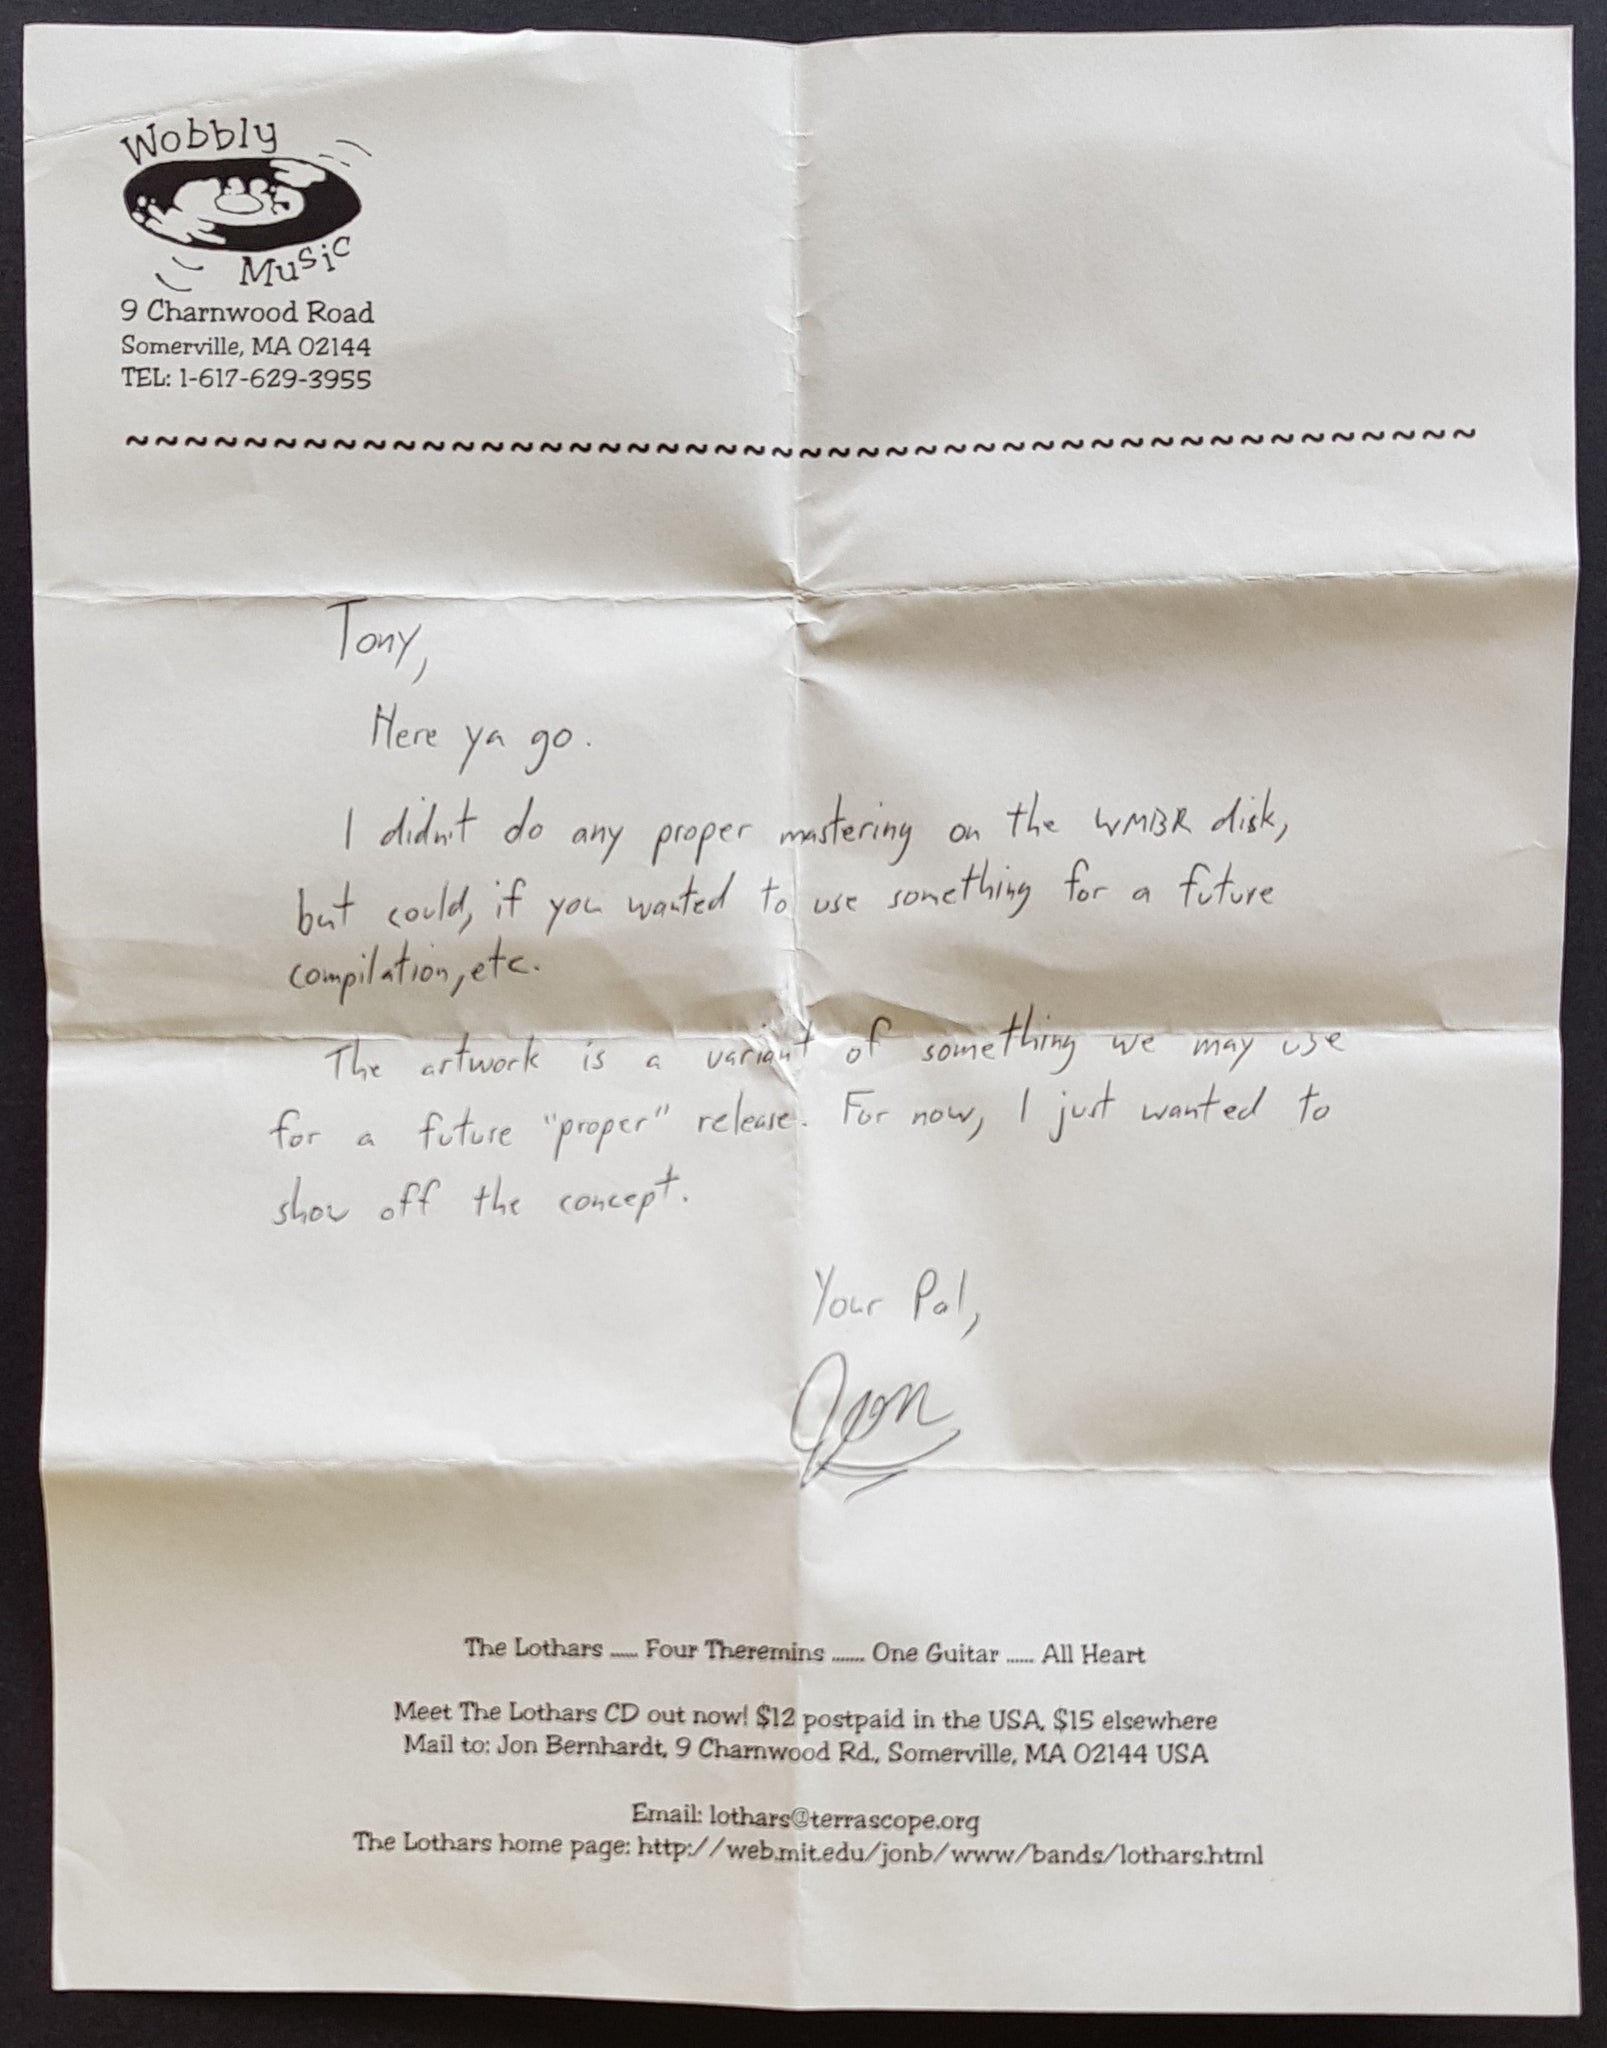 Wobbly
Music
9 Charnwood Road
Somerville, MA 02144
TEL: 1-617-629-3955
~~~~~~~~~~~~~~~~~~~~~~~~~~~~~~~~~~~~~~~~~~~~~~~
Tony,
Here ya go.
I didn't do any proper mastering on the WMBR disk,
but could, if you wanted to use something for a future
compilation, etc.
The artwork is a variant of something we may use
for a future "proper" release. For now, I just wanted to
show off the concept.
Your Pal,
Jon
The Lothars ...... Four Theremins ....... One Guitar ...... All Heart
Meet The Lothars CD out now! $12 postpaid in the USA, $15 elsewhere
Mail to: Jon Bernhardt, 9 Charnwood Rd., Somerville, MA 02144 USA
Email: lothars@terrascope.org
The Lothars home page: http://web.mit.edu/jonb/www/bands/lothars.html